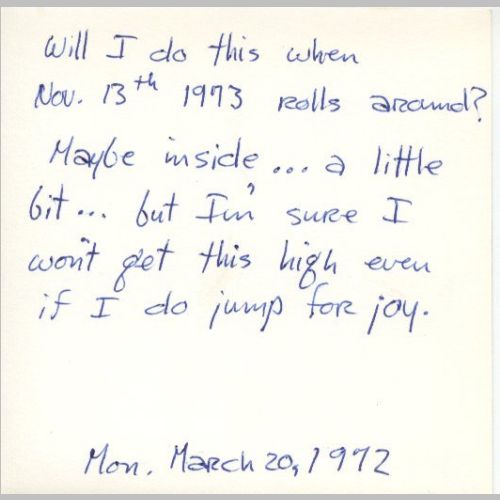 Will I do this when
Nov. 13th 1973 rolls around?
Maybe inside... a little
bit... but I'm sure I
won't get this high even
if I do jump for joy.
Mon. March 20, 1972